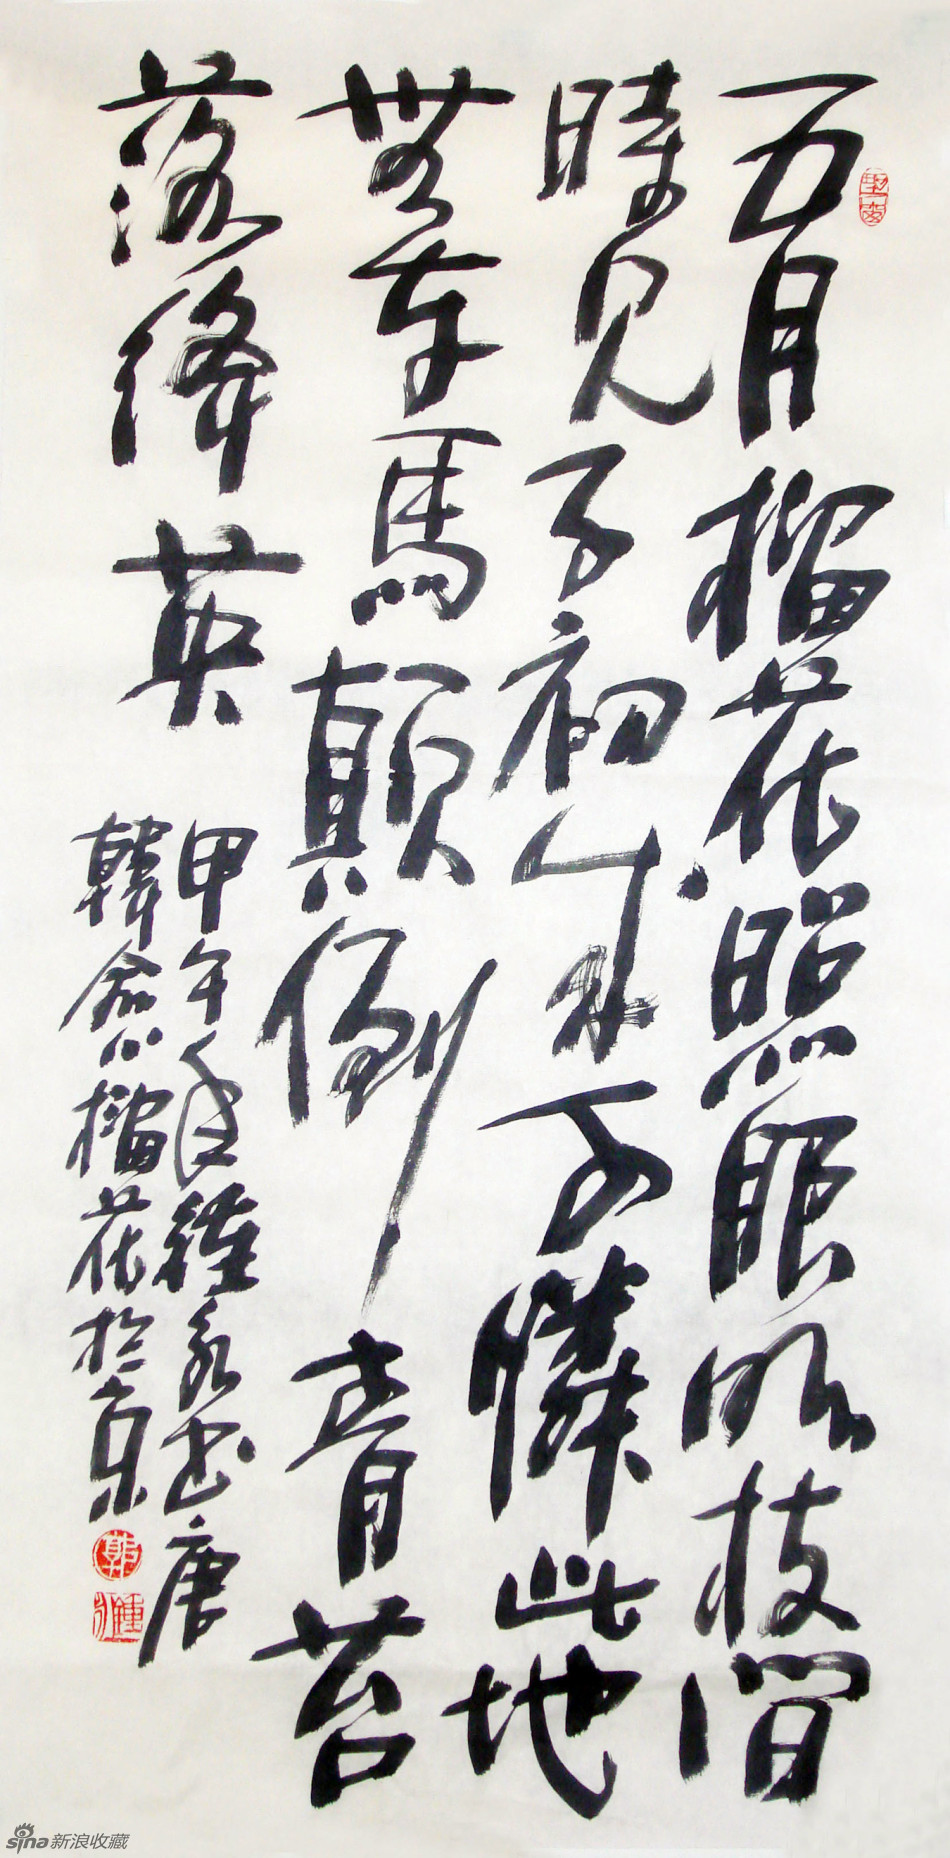 五月榴花照眼明枝間
時見子初成可憐此地
無車馬顛倒青苔
落絳英
甲午年鍾永書唐
韓愈榴花於京
sina新浪收藏